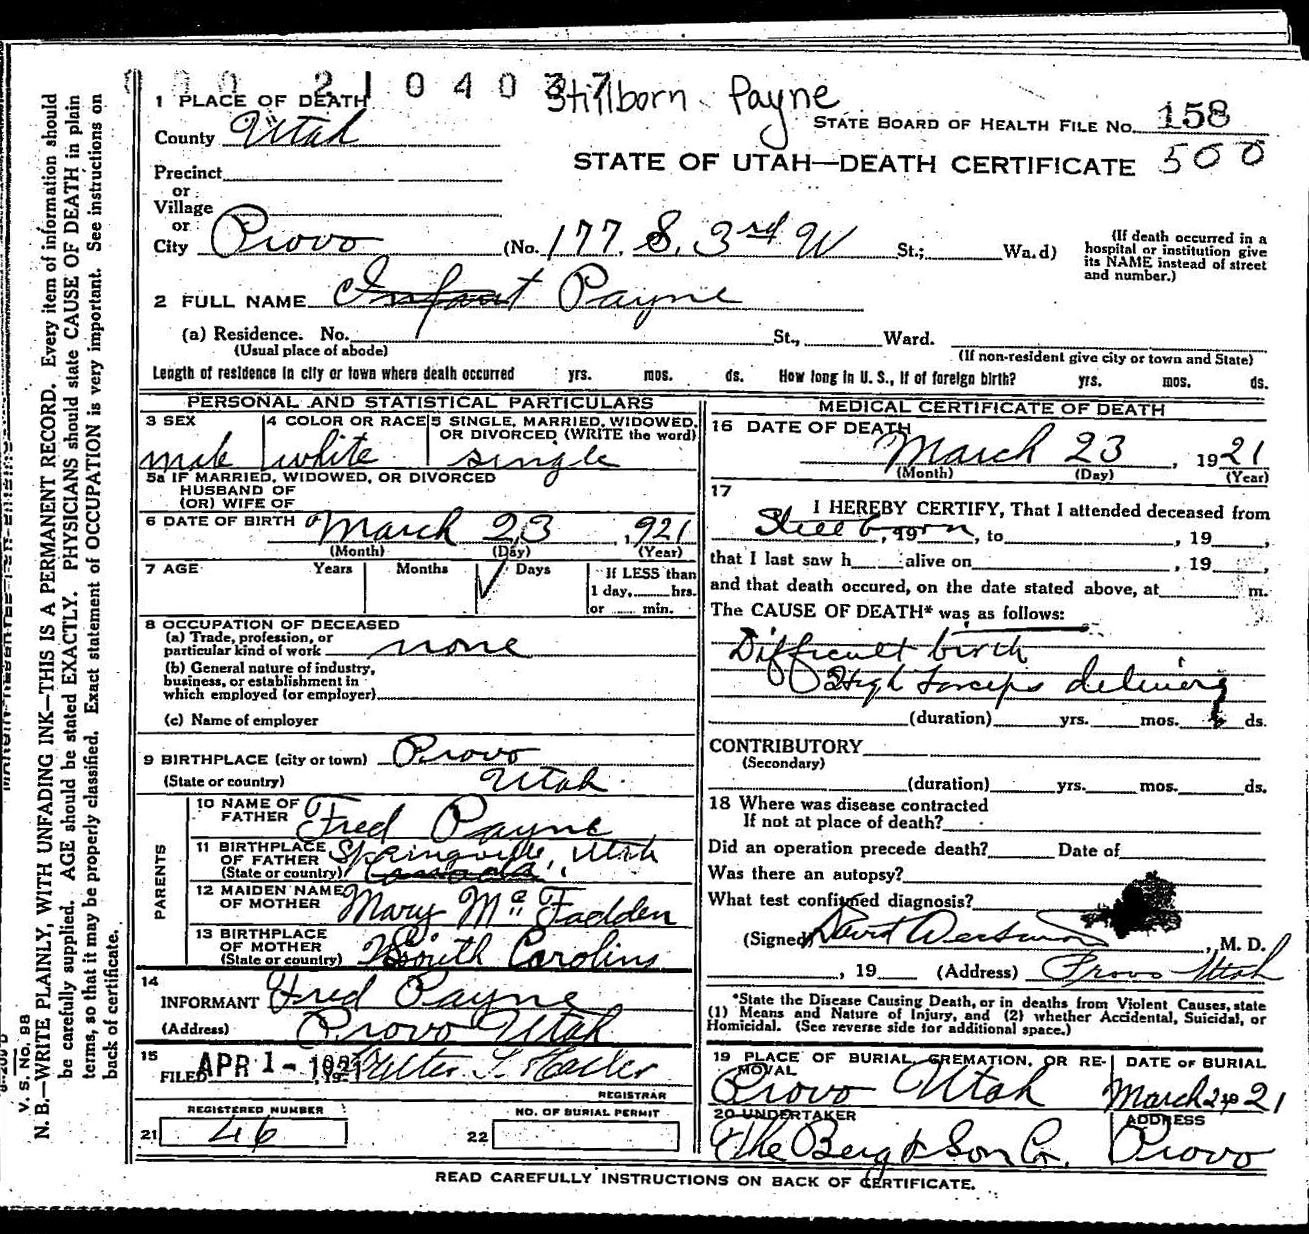 21040
Stillborn Payne
1 PLACE OF DEATH
County Utah
STATE BOARD OF HEALTH FILE No. 158
500
STATE OF UTAH—DEATH CERTIFICATE
Precinct
or
Village
or
City Provo (No. 177 S. 3rd W St.; Ward)
(If death occurred in a hospital or institution give its NAME instead of street and number.)
2 FULL NAME Infant Payne
(a) Residence. No. St., Ward.
(Usual place of abode) (If non-resident give city or town and State)
Length of residence in city or town where death occurred yrs. mos. ds. How long in U. S., if of foreign birth? yrs. mos. ds.
PERSONAL AND STATISTICAL PARTICULARS
3 SEX
male
4 COLOR OR RACE
white
5 SINGLE, MARRIED, WIDOWED, OR DIVORCED (WRITE the word)
single
5a IF MARRIED, WIDOWED, OR DIVORCED
HUSBAND OF
(OR) WIFE OF
6 DATE OF BIRTH March 23, 1921
(Month) (Day) (Year)
7 AGE Years Months Days If LESS than
1 day, hrs.
or min.
8 OCCUPATION OF DECEASED
(a) Trade, profession, or
particular kind of work none
(b) General nature of industry,
business, or establishment in
which employed (or employer)
(c) Name of employer
9 BIRTHPLACE (city or town) Provo
(State or country) Utah
PARENTS
10 NAME OF FATHER Fred Payne
11 BIRTHPLACE OF FATHER Springville, Utah
(State or country)
12 MAIDEN NAME OF MOTHER Mary McFadden
13 BIRTHPLACE OF MOTHER
(State or country) South Carolina
14
INFORMANT Fred Payne
(Address) Provo Utah
15
FILED APR 1 - 1921
REGISTRAR
REGISTERED NUMBER
21 46
NO. OF BURIAL PERMIT
22
MEDICAL CERTIFICATE OF DEATH
16 DATE OF DEATH
March 23, 1921
(Month) (Day) (Year)
17
I HEREBY CERTIFY, That I attended deceased from
Still born, 19 , to , 19 ,
that I last saw h alive on , 19 ,
and that death occured, on the date stated above, at m.
The CAUSE OF DEATH* was as follows:
Difficult birth
High forceps delivery
(duration) yrs. mos. ds.
CONTRIBUTORY
(Secondary)
(duration) yrs. mos. ds.
18 Where was disease contracted
If not at place of death?
Did an operation precede death? Date of
Was there an autopsy?
What test confirmed diagnosis?
(Signed) David , M. D.
, 19 (Address) Provo Utah
*State the Disease Causing Death, or in deaths from Violent Causes, state
(1) Means and Nature of Injury, and (2) whether Accidental, Suicidal, or
Homicidal. (See reverse side for additional space.)
19 PLACE OF BURIAL, CREMATION, OR REMOVAL
Provo Utah
DATE OF BURIAL
March 24 1921
20 UNDERTAKER
The Berg & Son Co.
ADDRESS
Provo
READ CAREFULLY INSTRUCTIONS ON BACK OF CERTIFICATE.
V. S. No. 88
N. B.—WRITE PLAINLY, WITH UNFADING INK—THIS IS A PERMANENT RECORD. Every item of information should
be carefully supplied. AGE should be stated EXACTLY. PHYSICIANS should state CAUSE OF DEATH in plain
terms, so that it may be properly classified. Exact statement of OCCUPATION is very important. See instructions on
back of certificate.